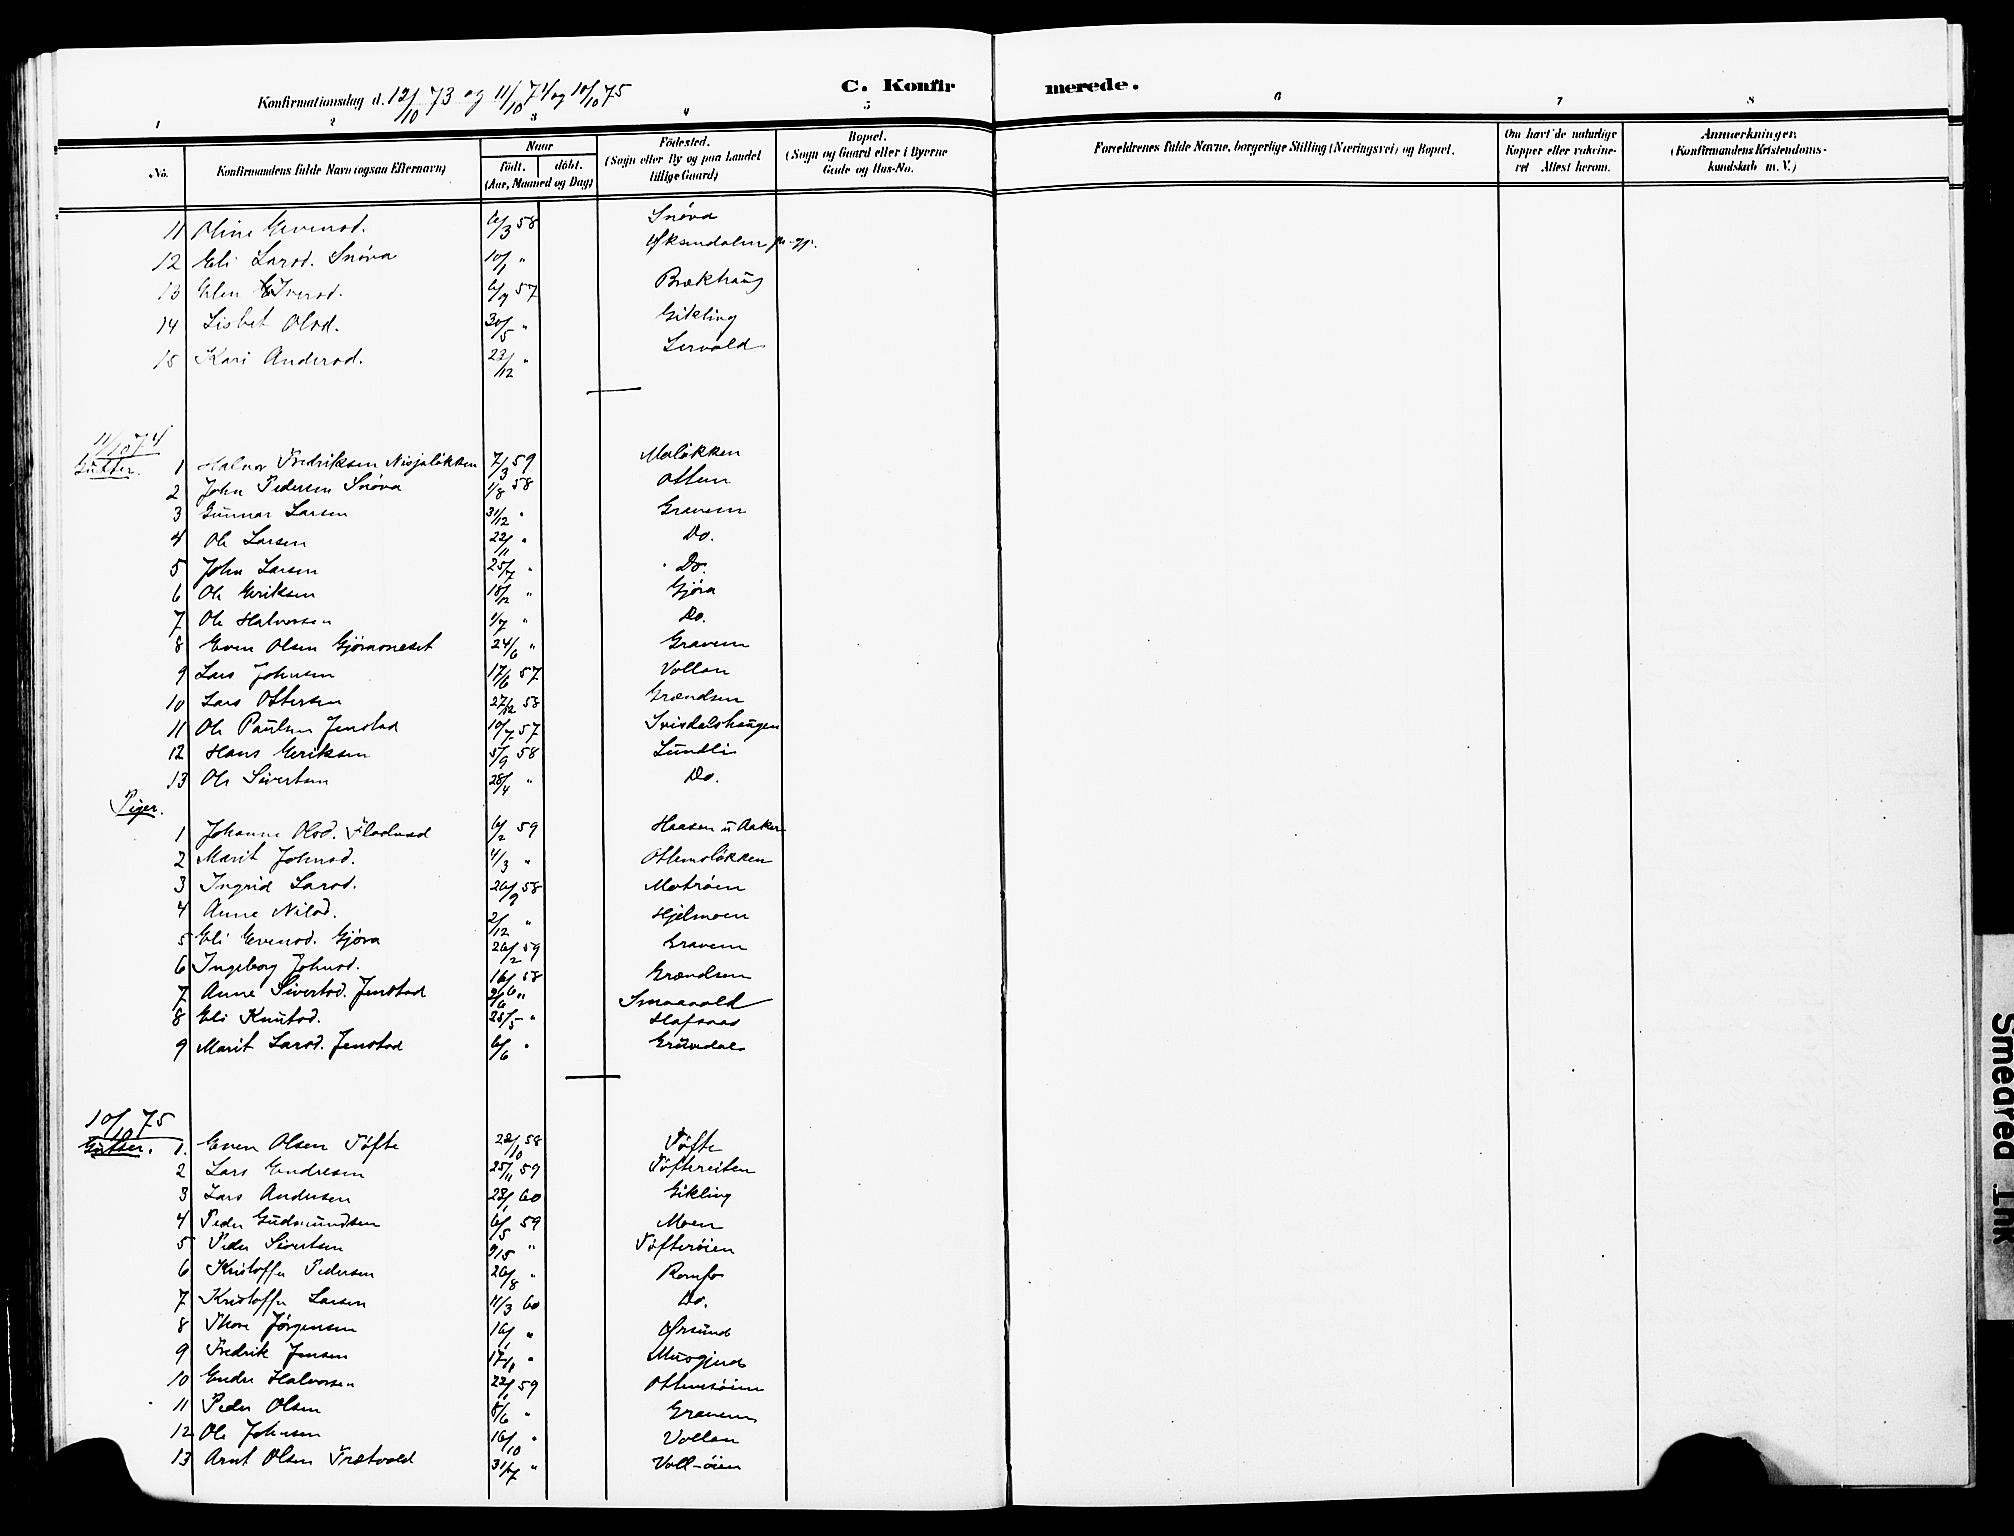 Konfirmationsdag d. 12/10 73 og 11/10 74 og 10/10 75
C. Konfir merede.
1 2 3 4 5 6 7 8
No. Konfirmandens fulde Navn (ogsaa Efternavn) Naar født. døbt. (Aar, Maaned og Dag) Fødested. (Sogn eller By og paa Landet tillige Gaard) Bopæl. (Sogn og Gaard eller i Byerne Gade og Hus-No. Forældrenes fulde Navne, borgerlige Stilling (Næringsvei) og Bopæl. Om havt de naturlige Kopper eller vakcineret Attest herom. Anmærkninger. (Konfirmandens Kristendomskundskab m. V.)
11 Oline Evensd. 6/3 58 Snøva
12 Eli Larsd. Snøva 10/1 " Øksendalen
13 Elen Iversd. 6/9 57 Brækhaug
14 Lisbet Olsd. 30/5 " Gikling
15 Kari Andersd. 22/12 " Lervold
11/10 74
Gutter.
1 Halvor Fredriksen Nisjaløkken 7/3 59 Moløkken
2 John Pedersen Snøva 1/8 58 Ottem
3 Gunnar Larsen 31/12 " Gravem
4 Ole Larsen 22/11 " Do.
5 John Larsen 25/7 " Do.
6 Ole Eriksen 18/12 " Gjøra
7 Ole Halvorsen 1/7 " Do.
8 Even Olsen Gjøraoneset 24/6 " Gravem
9 Lars Johnsen 17/6 57 Vollan
10 Lars Ottersen 27/12 58 Grændsen
11 Ole Paulsen Jenstad 10/7 57 Svisdalshaugen
12 Hans Eriksen 5/9 58 Lundli
13 Ole Sivertsen 28/4 " Do.
Piger.
1 Johanne Olsd. Fladvad 6/2 59 Haasen u Aaker
2 Marit Johnsd. 4/3 " Ottemsløkken
3 Ingrid Larsd. 26/9 58 Motrøen
4 Anne Nilsd. 2/12 " Hjelmoen
5 Eli Evensd. Gjøra 26/2 59 Gravem
6 Ingeborg Johnsd. 16/6 58 Grændsen
7 Anne Sivertsd. Jenstad 2/6 " Smaavold
8 Eli Knutsd. 25/5 " Hafsaas
9 Marit Larsd. Jenstad 6/6 " Grøvdal
10/10 75
Gutter.
1. Even Olsen Tøfte 22/10 58 Tøfte
2 Lars Endresen 25/11 59 Tøftereiten
3 Lars Andersen 28/1 60 Gikling
4 Peder Gudmundsen 6/5 59 Moen
5 Peder Sivertsen 9/5 " Tøfterøien
6 Kristoffer Pedersen 26/8 " Romfo
7 Kristoffer Larsen 11/3 60 Do.
8 Thore Jørgensen 16/1 " Ørsund
9 Fredrik Jensen 17/1 " Musgjerd
10 Endre Halvorsen 22/1 59 Ottemsøien
11 Peder Olsen 8/6 " Gravem
12 Ole Johnsen 16/10 " Vollan
13 Arnt Olsen Trætvold 31/7 " Voll-øien
Smeared Ink